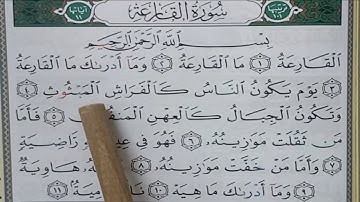 سُورَةُ القَارِعَةِ
بِسْمِ اللَّهِ الرَّحْمَٰنِ الرَّحِيمِ
الْقَارِعَةُ ١ مَا الْقَارِعَةُ ٢ وَمَا أَدْرَىٰكَ مَا الْقَارِعَةُ
٣ يَوْمَ يَكُونُ النَّاسُ كَالْفَرَاشِ الْمَبْثُوثِ ٤
وَتَكُونُ الْجِبَالُ كَالْعِهْنِ الْمَنفُوشِ ٥ فَأَمَّا
مَن ثَقُلَتْ مَوَٰزِينُهُۥ ٦ فَهُوَ فِي عِيشَةٍ رَّاضِيَةٍ
٧ وَأَمَّا مَنْ خَفَّتْ مَوَٰزِينُهُۥ ٨ هَاوِيَةٌ
٩ وَمَا أَدْرَىٰكَ مَا هِيَهْ ١٠ نَارٌ حَامِيَةٌ ١١